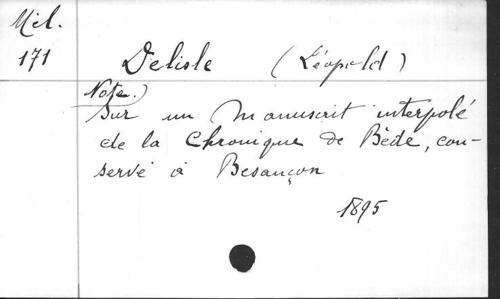 Mél.
171
Delisle (Léopold)
Note.)
Sur un Manuscrit interpolé
de la Chronique de Bède, con-
servé à Besançon
1895